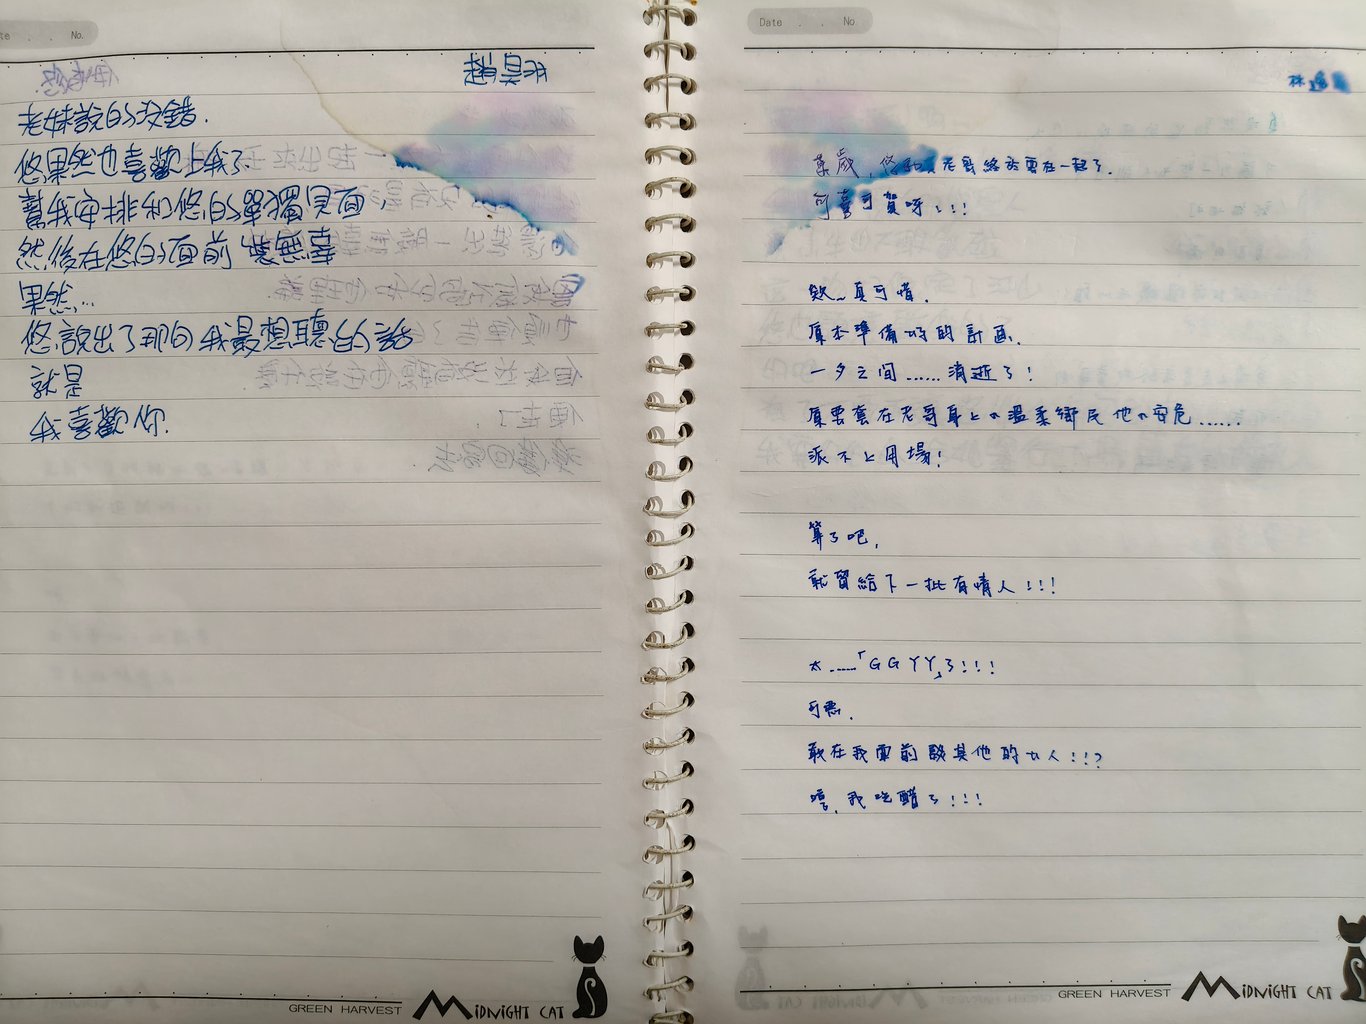 te . . No.
老妹說的沒錯.
悠果然也喜歡上我了.
幫我安排和悠的單獨見面,
然後在悠的面前裝無辜
果然...
悠說出了那句我最想聽的話
就是
我喜歡你.
GREEN HARVEST MIDNIGHT CAT
Date . . No.
林
萬歲,悠和老哥終於要在一起了.
可喜可賀呀!!!
欸~真可惜.
原本準備好的計畫.
一夕之間......消逝了!
原要套在老哥身上の溫柔鄉民他の安危......
派不上用場!
算了吧,
就留給下一批有情人!!!
太......「GGYY」了!!!
可惡.
敢在我面前談其他的女人!!?
哼,我吃醋了!!!
GREEN HARVEST MIDNIGHT CAT